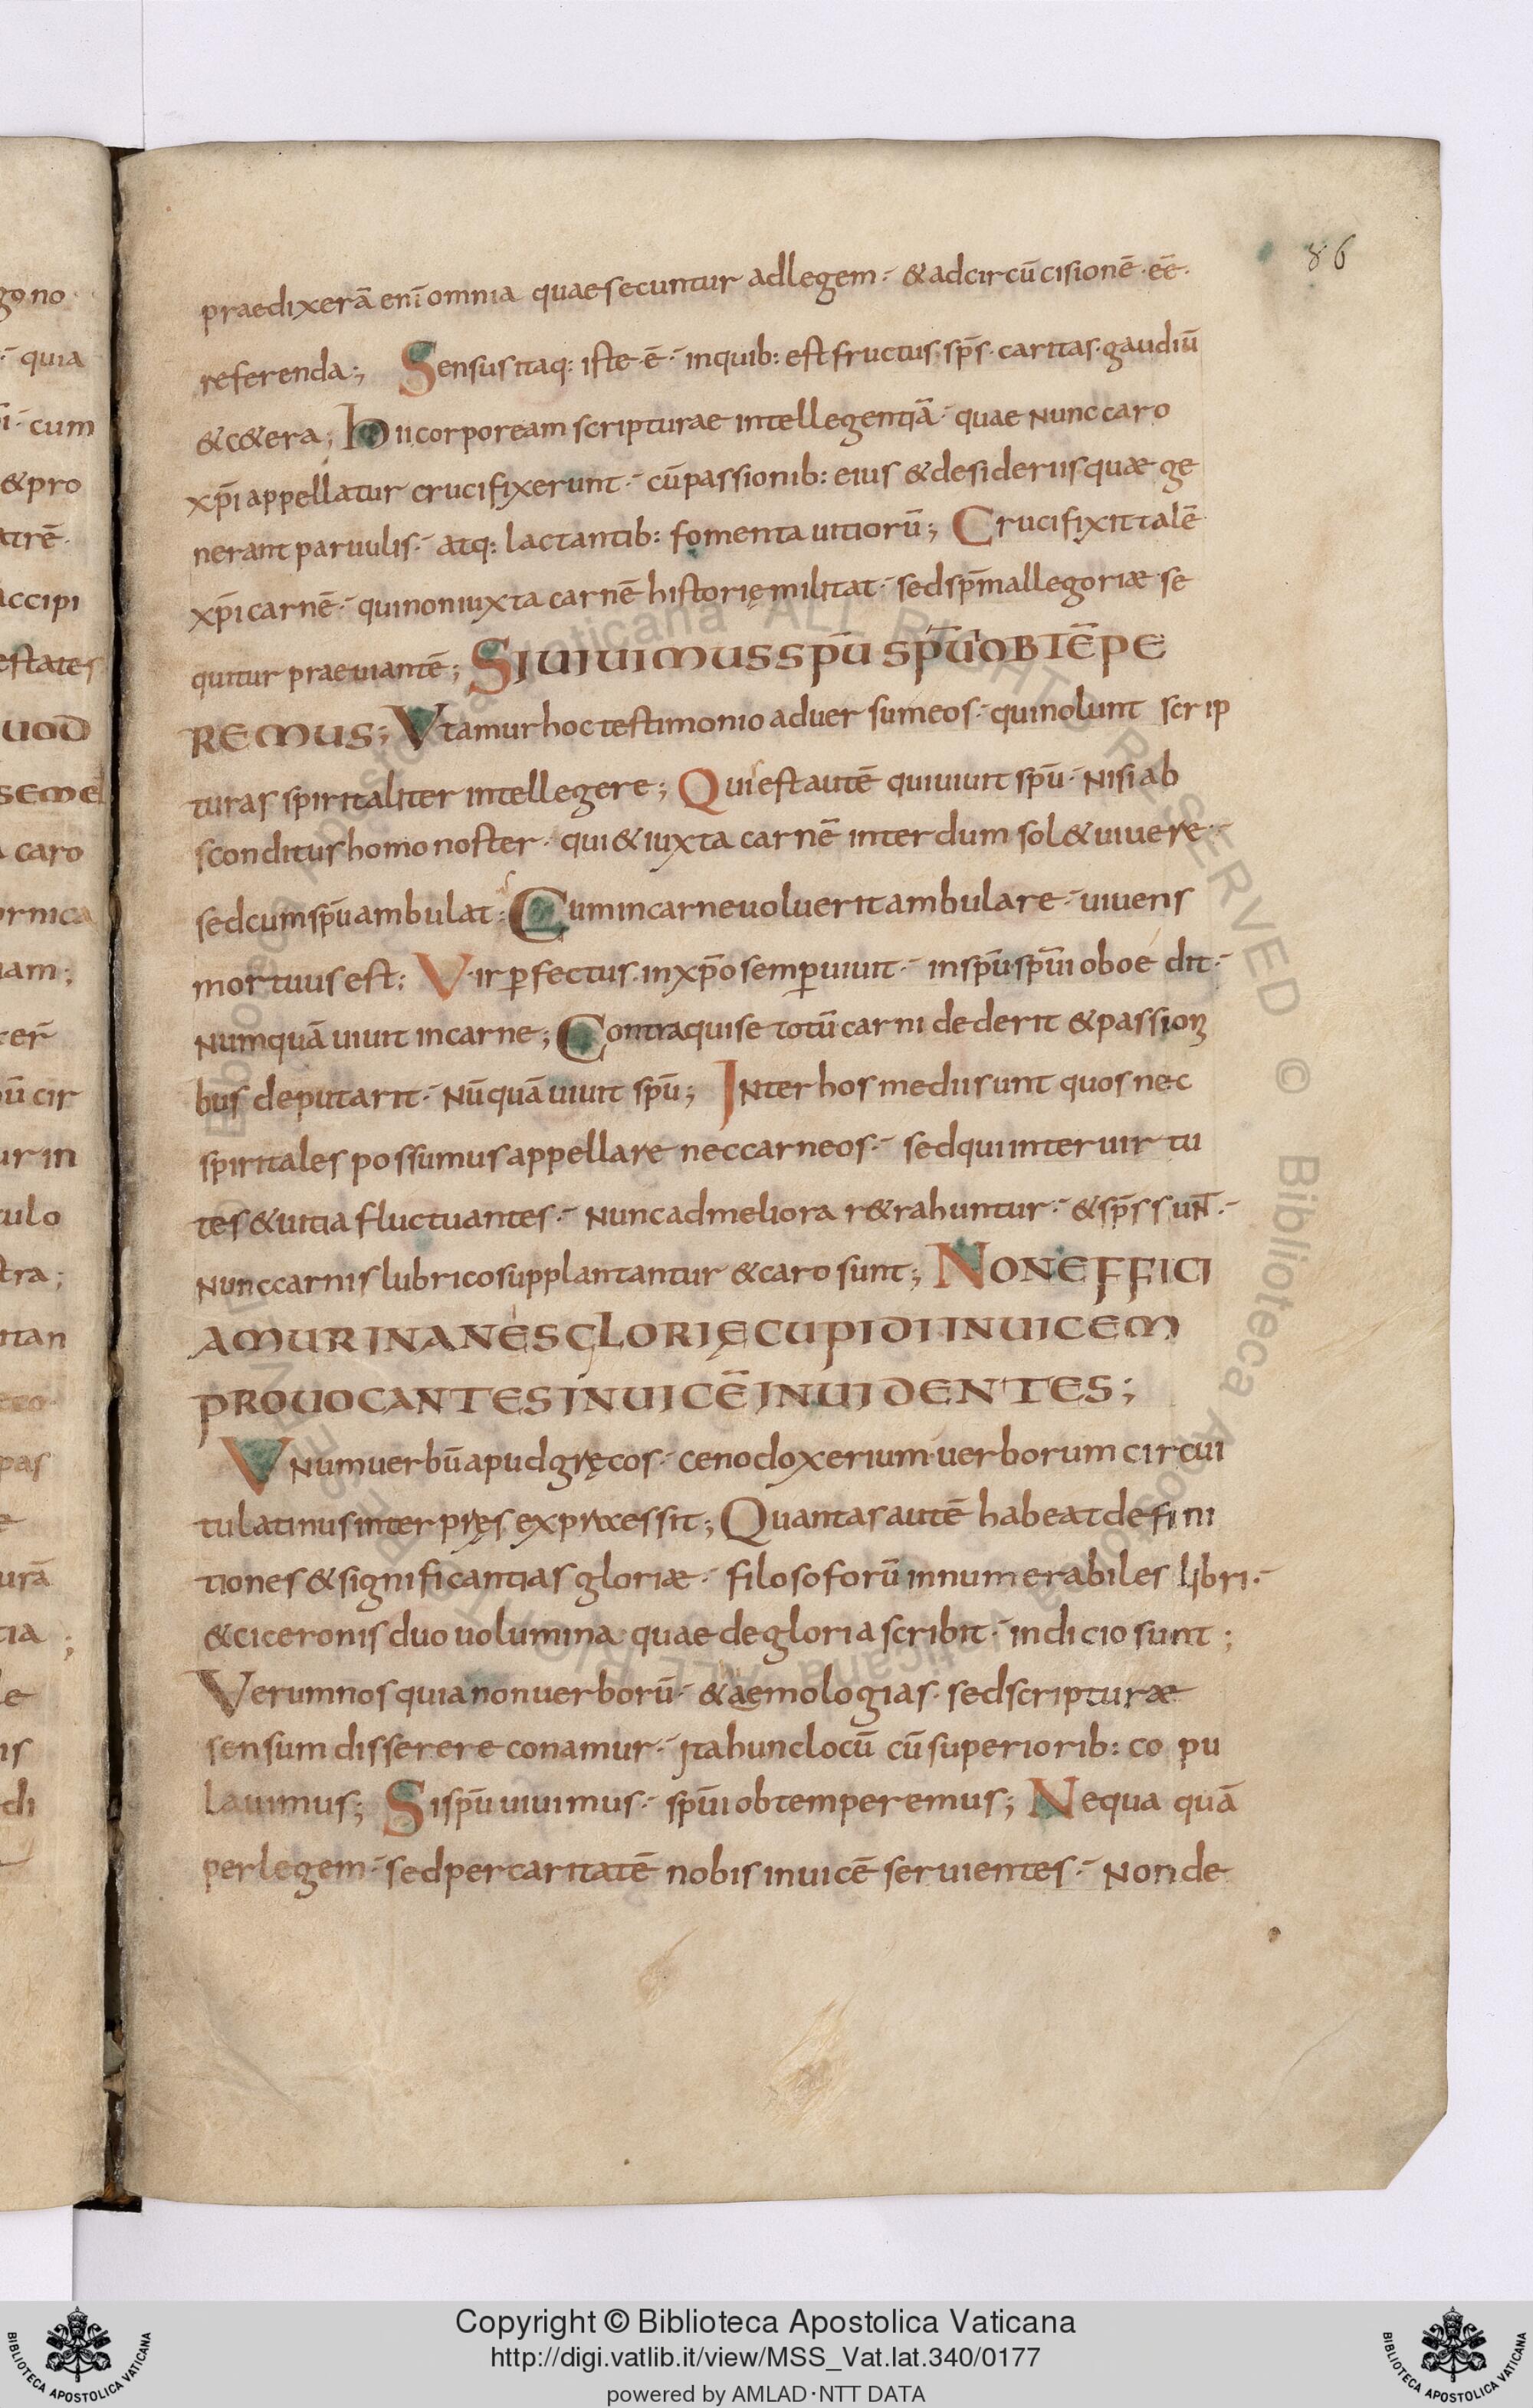 86
praedixerā enī omnia quae secuntur ad legem · & ad circū cisionē · eē ·
referenda ; Sensus itaq: iste · ē · in quib: est fructus sp̄s · caritas · gaudiū
& c&era ; hii corpoream scripturae intellegentiā · quae nunc caro
xp̄i appellatur crucifixerunt · cū passionib: eius & desideriis quæ ge
nerant paruulis · atq: lactantib: fomenta uitiorū ; Crucifixit talē
xp̄i carnē · qui non iuxta carnē historię militat · sed sp̄m allegoriæ se
quitur praeuiantē ; SI UIUIMUS SPŪ SPŪI OBTĒPE
REMUS ; Vtamur hoc testimonio aduersum eos · qui nolunt scrip
turas spiritaliter intellegere ; Qui est autē qui uiuit spū · nisi ab
sconditus homo noster · qui & iuxta carnē interdum sol& uiuere ·
sed cum spū ambulat : Cum in carne uoluerit ambulare · uiuens
mortuus est : Vir p̄fectus in xp̄o semp̄ uiuit · in spū spūi oboedit ·
numquā uiuit in carne ; Contra qui se totū carni dederit & passioni
bus deputarit · nūquā uiuit spū ; Inter hos medii sunt quos nec
spiritales possumus appellare nec carneos · sed qui inter uirtu
tes & uitia fluctuantes · nunc ad meliora r&rahuntur · & sp̄s sun̄t ·
nunc carnis lubrico supplantantur & caro sunt ; NON EFFICI
AMUR INANES GLORIĘ CUPIDI INUICEM
PROUOCANTES INUICĒ INUIDENTES ;
Vnum uerbū apud gręcos · cenodoxerium uerborum circui
tu latinus interpręs expraessit ; Quantas autē habeat defini
tiones & significantias gloriæ · filosoforū innumerabiles libri ·
& ciceronis duo uolumina quae de gloria scribit · indicio sunt ;
Verum nos quia non uerborū · & aemologias · sed scripturæ
sensum disserere conamur · ita hunc locū cū superiorib: co pu
lauimus ; Si spū uiuimus · spūi obtemperemus ; Nequa quā
per legem · sed per caritatē nobis inuicē seruientes · non de
Copyright © Biblioteca Apostolica Vaticana
http://digi.vatlib.it/view/MSS_Vat.lat.340/0177
powered by AMLAD·NTT DATA